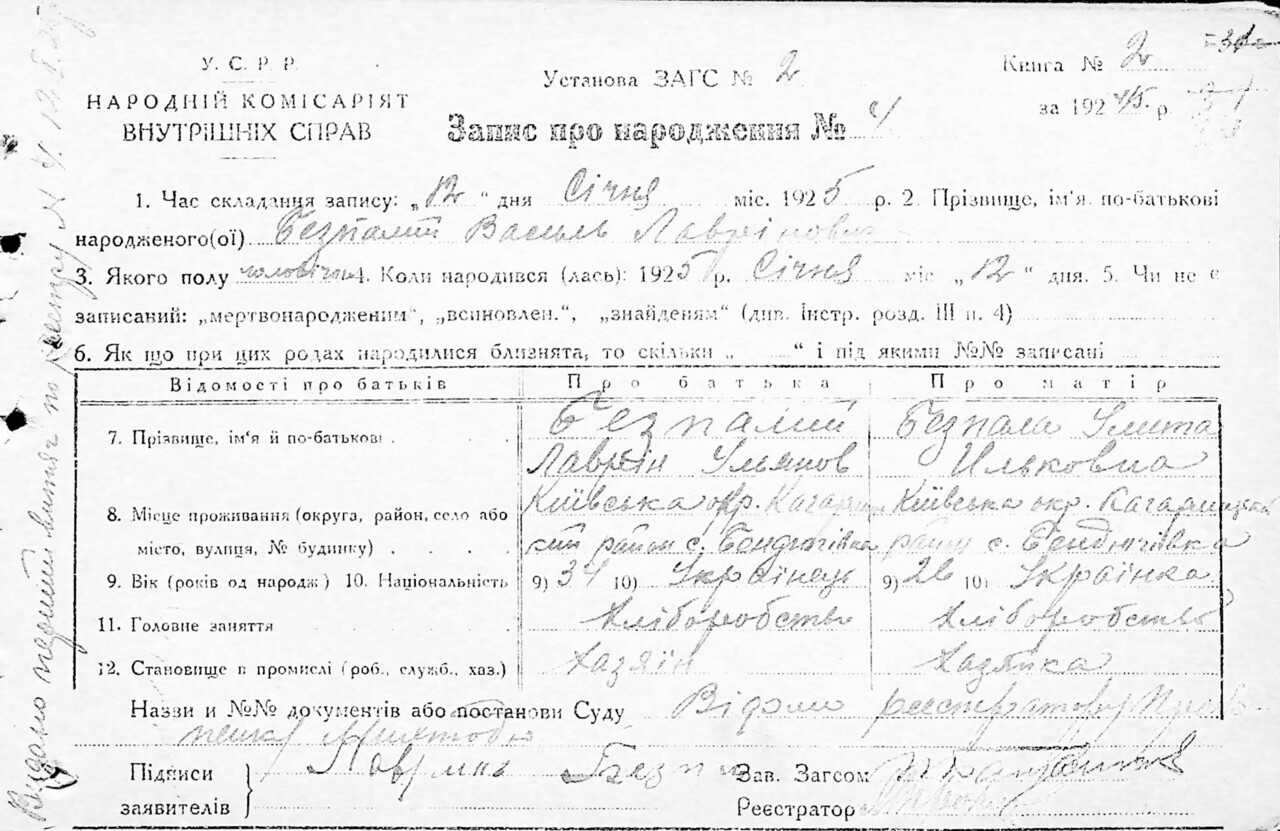 У. С. Р. Р.
НАРОДНІЙ КОМІСАРІЯТ
ВНУТРІШНІХ СПРАВ
Установа ЗАГС № 2
Книга № 2
за 1924/5 р.
Запис про народження № 4
1. Час складання запису: „12" дня Січня міс. 1925 р. 2. Прізвище, ім'я по-батькові
народженого(ої) Безпалий Василь Лаврінович
3. Якого полу чоловічии 4. Коли народився (лась): 1925 р. Січня міс „12" дня. 5. Чи не є
записаний: „мертвонародженим", „всиновлен.", „знайденям" (див. Інстр. розд. III п. 4)
6. Як що при цих родах народилися близнята, то скільки „ " і під якими №№ записані
Відомості про батьків Про батька Про матір
7. Прізвище, ім'я й по-батькові Безпалий Безпала Улита
Лаврін Ульянов Ильковна
8. Місце проживання (округа, район, село або Київська окр. Кагарлиц Київська окр. Кагарлицкий
місто, вулиця, № будинку) кий район с. Бендюгівка район с. Бендюгівка
9. Вік (років од народж) 10. Національність 9) 31 10) Українець 9) 26 10) Українка
11. Головне заняття Хліборобство Хліборобство
12. Становище в промислі (роб., служб., хаз.) Хазяін Хазяйка
Назви и №№ документів або постанови Суду Відомо
Підписи
заявителів
Зав. Загсом
Реєстратор
Видано перший витяг по реєстру № 4